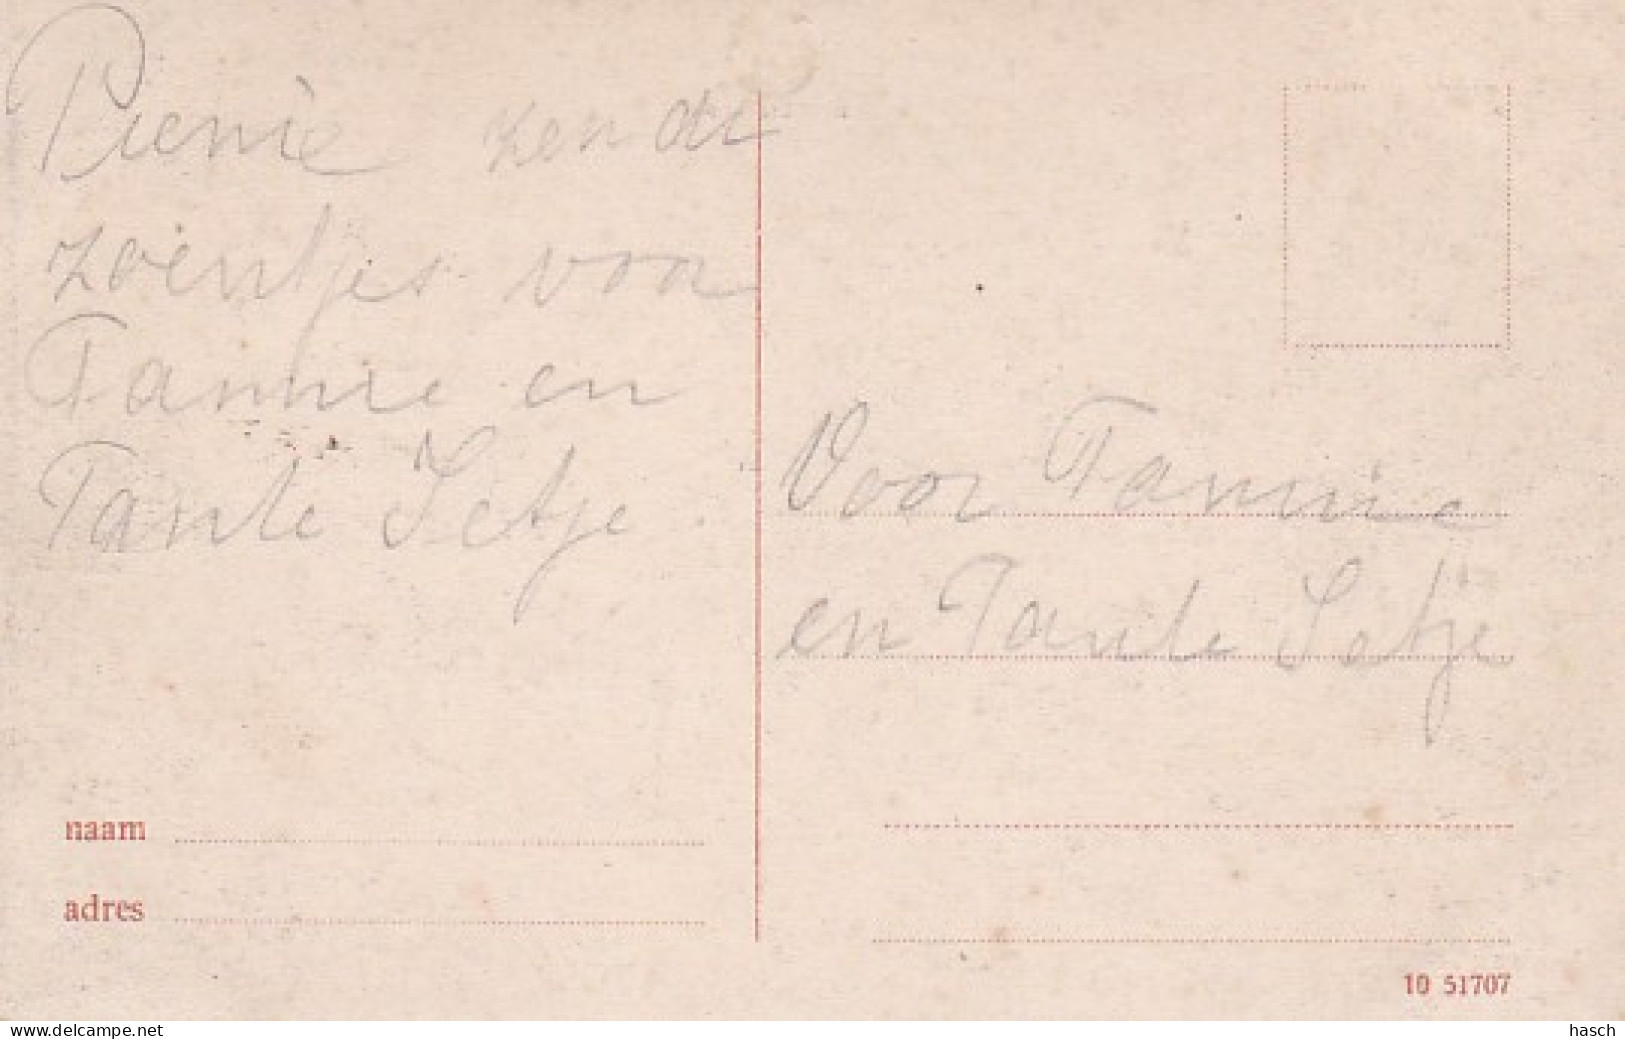 Pienie zendt
zoentjes voor
Tannie en
Tante Jetje.
Voor Tannie
en Tante Jetje
naam
adres
10 51707
www.delcampe.net
hasch